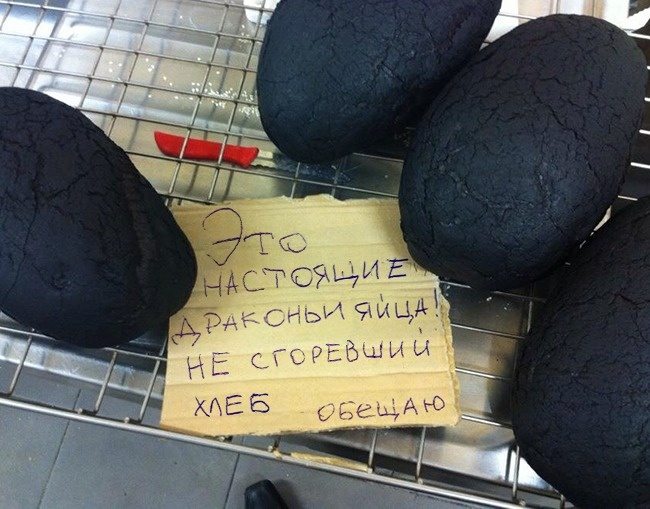 Это
настоящие
драконьи яйца!
не сгоревший
хлеб обещаю